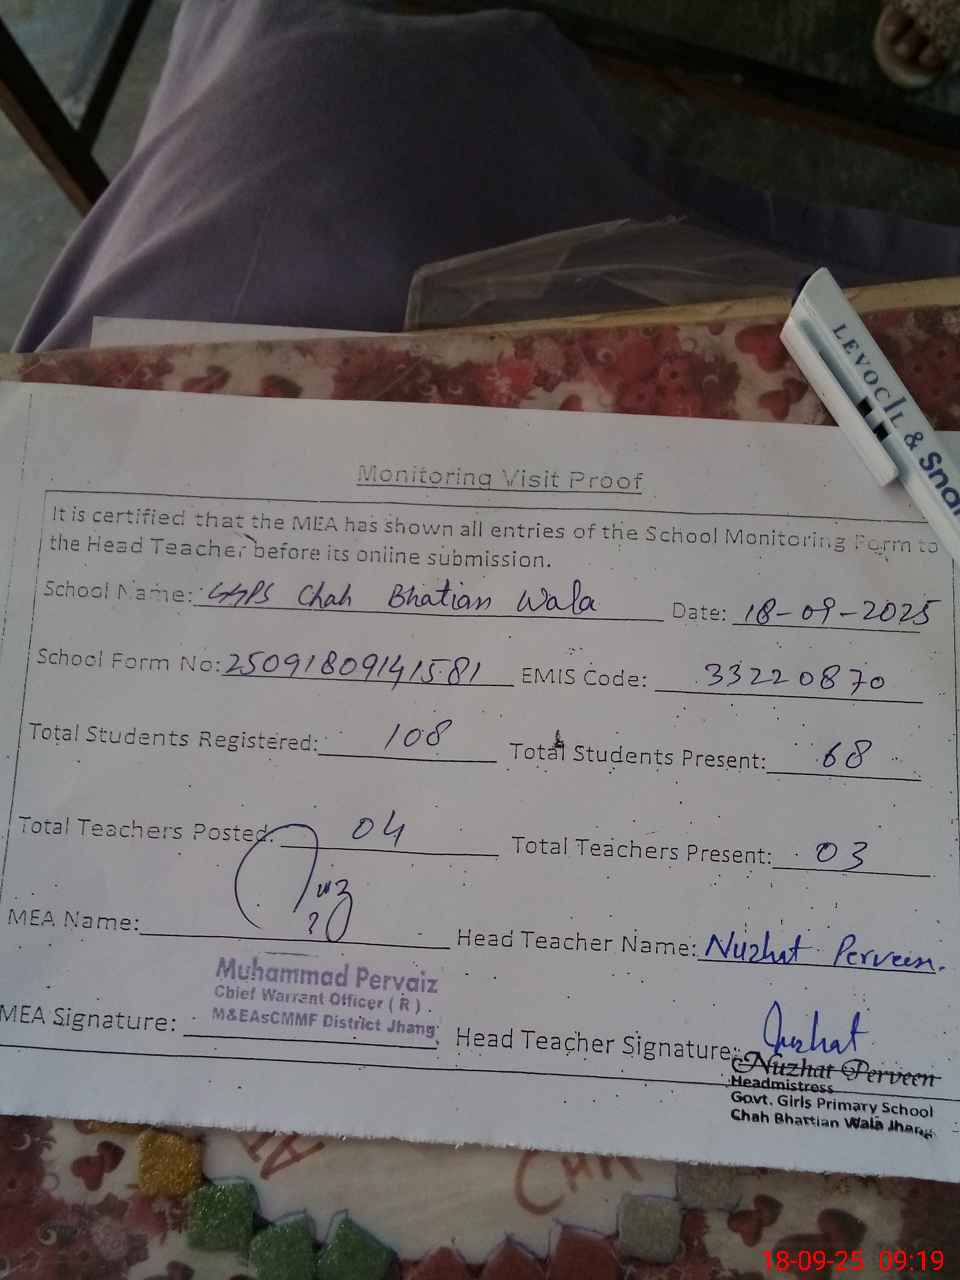 LEVOCIL & Snar
Monitoring Visit Proof
It is certified that the MEA has shown all entries of the School Monitoring Form to
the Head Teacher before its online submission.
School Name: GGPS Chah Bhatian Wala Date: 18-09-2025
School Form No: 25091809141581 EMIS Code: 33220870
Total Students Registered: 108 Total Students Present: 68
Total Teachers Posted: 04 Total Teachers Present: 03
MEA Name: Head Teacher Name: Nuzhat Perveen.
Muhammad Pervaiz
Chief Warrant Officer ( R ) .
M&EAsCMMF District Jhang
MEA Signature: Head Teacher Signature: Nuzhat
Nuzhat Perveen
Headmistress
Govt. Girls Primary School
Chah Bhattian Wala Jhang
18-09-25 09:19